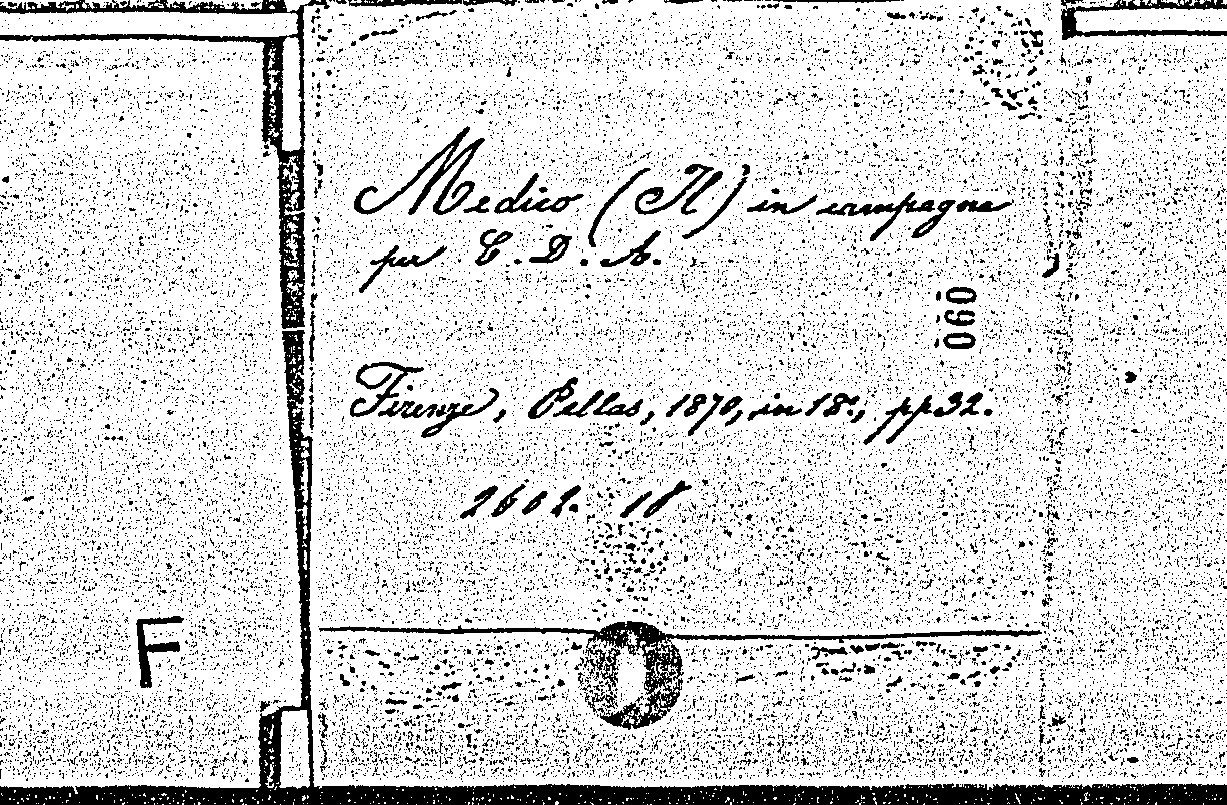 Medico (Il) in campagna
per C. D. A.
060
Firenze, Pellas, 1870, in 18º, pp 32.
2602. 18
F